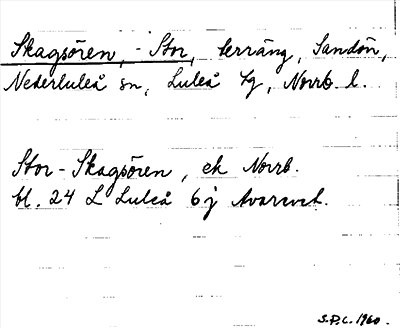 Skagsören, - Stor, terräng, Sandön,
Nederluleå sn, Luleå tg, Norrb. l.
Stor-Skagsören, ek Norrb.
bl. 24 L Luleå 6 j
S.P.L. 1960.